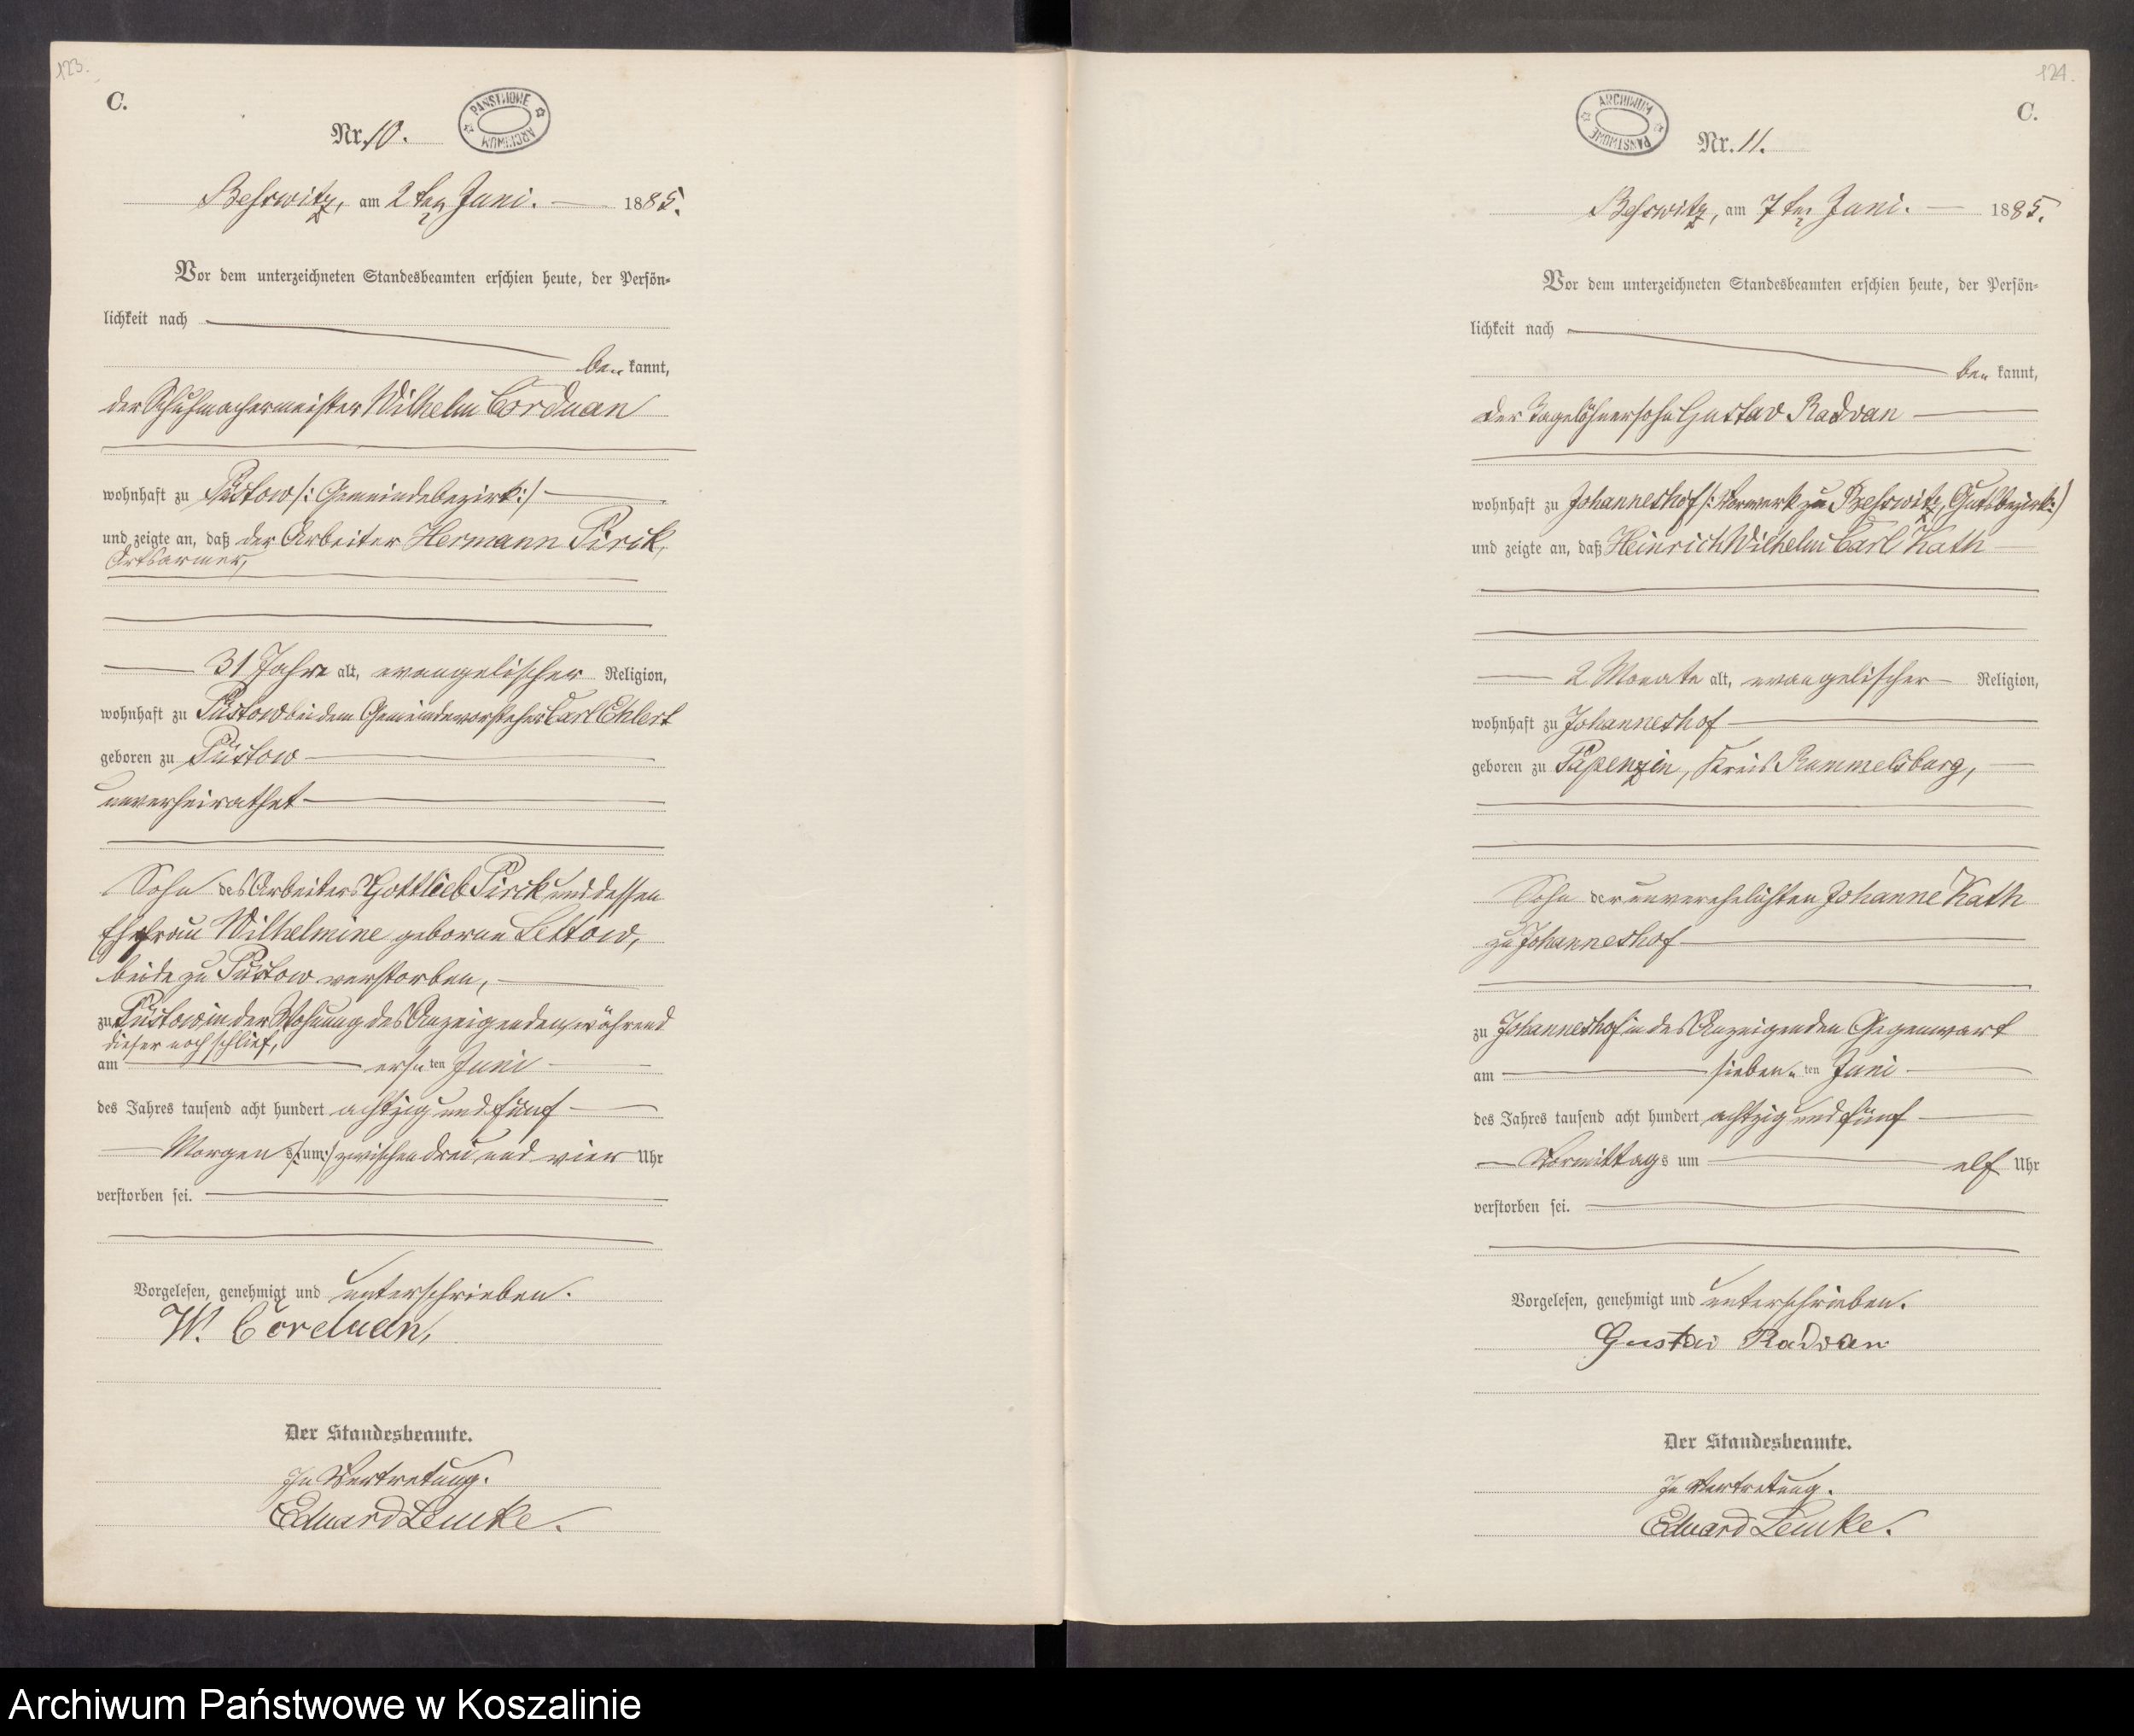 123.
C.
Nr. 10.
PAŃSTWOWE ARCHIWUM
Behrwitz, am 2ten Juni. 1885.
Vor dem unterzeichneten Standesbeamten erschien heute, der Persön-
lichkeit nach
be kannt,
der Schuhmachermeister Wilhelm Corduan
wohnhaft zu Püstow /: Gemeindebezirk :/
und zeigte an, daß der Arbeiter Hermann Pirck,
Ortsarmer,
31 Jahre alt, evangelischer Religion,
wohnhaft zu Püstow bei dem Gemeindevorsteher Carl Ehlert
geboren zu Püstow
unverheirathet
Sohn des Arbeiters Gottlieb Pirck und dessen
Ehefrau Wilhelmine geborne Lettow,
beide zu Püstow verstorben,
zu Püstow in der Wohnung des Anzeigenden, während
dieser noch schlief,
am ersten Juni
des Jahres tausend acht hundert achtzig und fünf
Morgens /: um :/ zwischen drei und vier Uhr
verstorben sei.
Vorgelesen, genehmigt und unterschrieben.
W. Corduan,
Der Standesbeamte.
In Vertretung.
Eduard Lemke.
124.
C.
ARCHIWUM PAŃSTWOWE
Nr. 11.
Behrwitz, am 7ten Juni. 1885.
Vor dem unterzeichneten Standesbeamten erschien heute, der Persön-
lichkeit nach
be kannt,
der Tagelöhnersohn Gustav Radvan
wohnhaft zu Johanneshof /: Vorwerk zu Behrwitz, Gutsbezirk :/
und zeigte an, daß Heinrich Wilhelm Carl Kath
2 Monate alt, evangelischer Religion,
wohnhaft zu Johanneshof
geboren zu Papenzin, Kreis Rummelsburg,
Sohn der unverehelichten Johanne Kath
zu Johanneshof
zu Johanneshof in des Anzeigenden Gegenwart
am siebenten Juni
des Jahres tausend acht hundert achtzig und fünf
Vormittags um elf Uhr
verstorben sei.
Vorgelesen, genehmigt und unterschrieben.
Gustav Radvan
Der Standesbeamte.
In Vertretung.
Eduard Lemke.
Archiwum Państwowe w Koszalinie